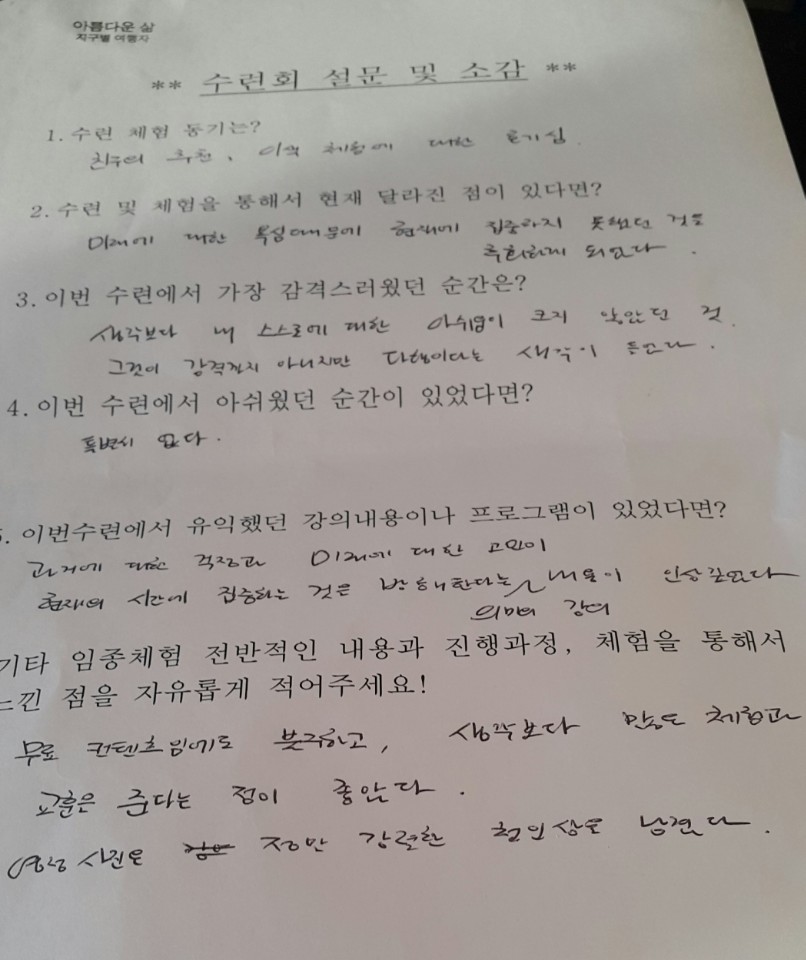 아름다운 삶
지구별 여행자
** 수련회 설문 및 소감 **
1. 수련 체험 동기는?
친구의 추천, 이색 체험에 대한 호기심.
2. 수련 및 체험을 통해서 현재 달라진 점이 있다면?
미래에 대한 욕심때문에 현재에 집중하지 못했던 것을
후회하게 되었다.
3. 이번 수련에서 가장 감격스러웠던 순간은?
생각보다 내 스스로에 대한 아쉬움이 크지 않았던 것.
그것이 감격까지 아니지만 다행이다는 생각이 들었다.
4. 이번 수련에서 아쉬웠던 순간이 있었다면?
특별시 없다.
5. 이번수련에서 유익했던 강의내용이나 프로그램이 있었다면?
과거에 대한 걱정과 미래에 대한 고민이
현재의 시간에 집중하는 것은 방해한다는 내용이 인상깊었다
의미의 강의
기타 임종체험 전반적인 내용과 진행과정, 체험을 통해서
느낀 점을 자유롭게 적어주세요!
무료 컨텐츠임에도 불구하고, 생각보다 많은 체험과
교훈은 준다는 점이 좋았다.
영정 사진은 정만 강렬한 첫인상을 남겼다.